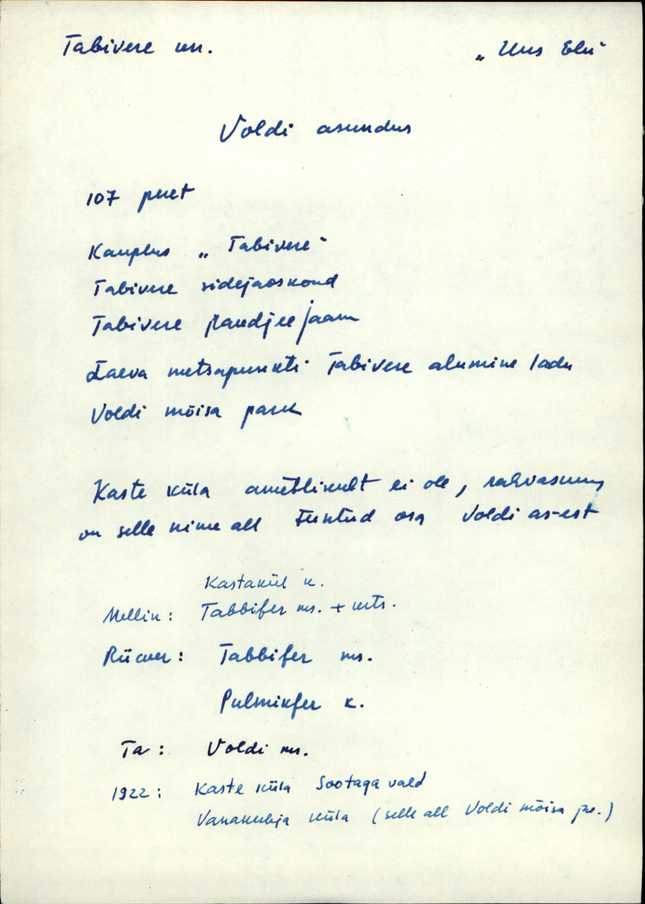 Tabivere kn. „Uus Elu"
Voldi asundus
107 peret
Kauplus „Tabivere"
Tabivere sidejaoskond
Tabivere raudteejaam
Laeva metsapunkti Tabivere alumine ladu
Voldi mõisa park
Kaste küla ametlikult ei ole, rahvasuus
on selle nime all tuntud osa Voldi as-est
Kastakül k.
Mellin: Tabbifer ms. + krts.
Rücker: Tabbifer ms.
Pulmikfer k.
Ta: Voldi ms.
1922: Kaste küla Sootaga vald
Vanakubja küla (selle all Voldi mõisa pr.)